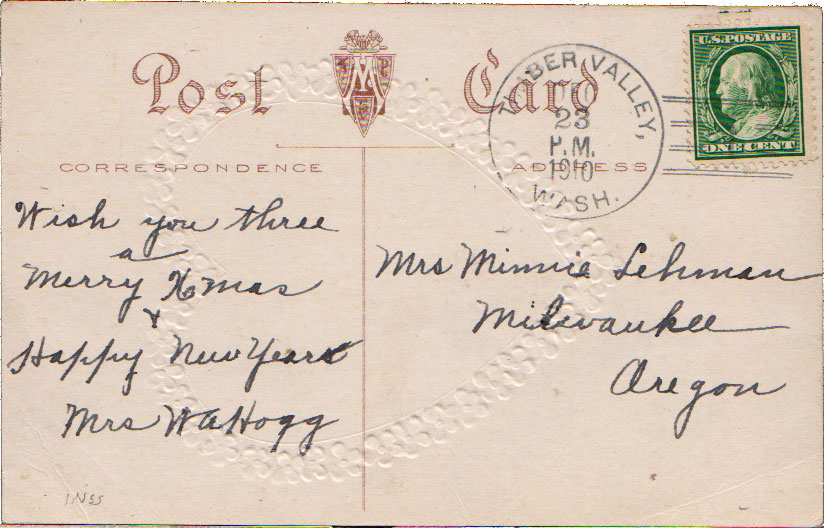 Post Card
U.S. POSTAGE
ONE CENT
TIMBER VALLEY,
23
P.M.
1910
WASH.
CORRESPONDENCE
ADDRESS
Wish you three
a
Merry Xmas
&
Happy New Year
Mrs WA Hogg
Mrs Minnie Lehman
Milwaukee
Oregon